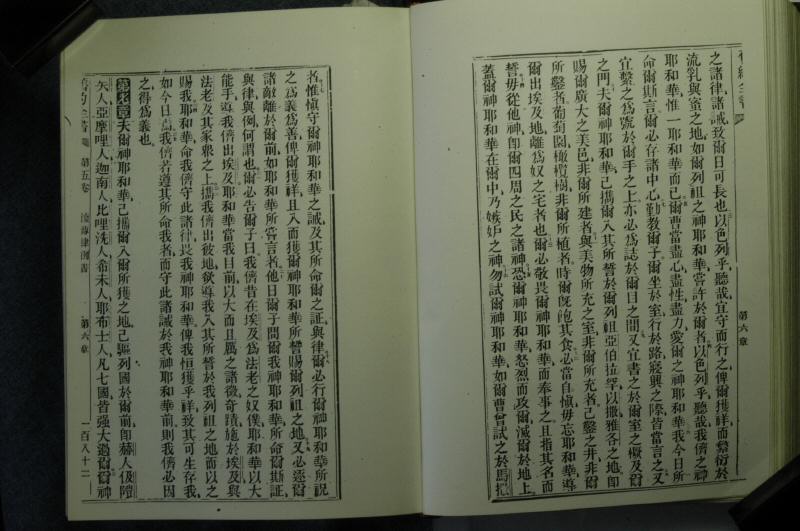 之諸律諸誡致爾日可長也以色列乎聽哉宜守而行之俾爾獲祥而繁衍於
流乳與蜜之地如爾列祖之神耶和華嘗許於爾者以色列乎聽哉我儕之神
耶和華惟一耶和華而已爾曹當盡心盡性盡力愛爾之神耶和華我今日所
命爾斯言爾必存諸中心勤教爾子爾坐於室行於路寢興之際皆當言之又
宜繫之爲號於爾手之上亦必爲誌於爾目之間又宜書之於爾室之橛及爾
之門夫爾神耶和華已攜爾入其所誓於爾列祖亞伯拉等以撒雅各之地即
賜爾廣大之美邑非爾所建者與美物所充之室非爾所充者已鑿之井非爾
所鑿者葡萄園橄欖樹非爾所植者時爾旣飽其食必當自愼毋忘耶和華導
爾出埃及地離爲奴之宅者也爾必敬畏爾神耶和華而奉事之且指其名而
誓毋從他神即爾四周之民之諸神恐爾神耶和華怒烈而攻爾滅爾於地上
蓋爾神耶和華在爾中乃嫉妒之神勿試爾神耶和華如爾曹曾試之於馬
第六章
者惟愼守爾神耶和華之誡及其所命爾之証與律爾必行爾神耶和華所說
之爲義爲善俾爾獲祥且入而獲爾神耶和華所誓賜爾列祖之地又必逐爾
諸敵離於爾前如耶和華所嘗言者他日爾子問爾我神耶和華所命爾斯証
與律與例何謂也爾必告爾子曰我儕昔在埃及爲法老之奴僕耶和華以大
能手導我儕出埃及耶和華當我目前以大而且厲之諸徵奇蹟施於埃及與
法老及其家衆之上攜我儕出彼地欲導我入其所誓於我列祖之地而以之
賜我耶和華命我儕守此諸律畏我神耶和華俾我恒獲乎祥致其可生存我
如今日焉我儕若遵其所命我者而守此諸誡於我神耶和華前則我儕必因
之得爲義也
第七章夫爾神耶和華已攜爾入爾所獲之地已驅列國於爾前即赫人及
矢人亞摩哩人迦南人比哩洗人希未人耶布士人凡七國皆强大過爾爾神
第五卷 律例書 第六章 一百八十二